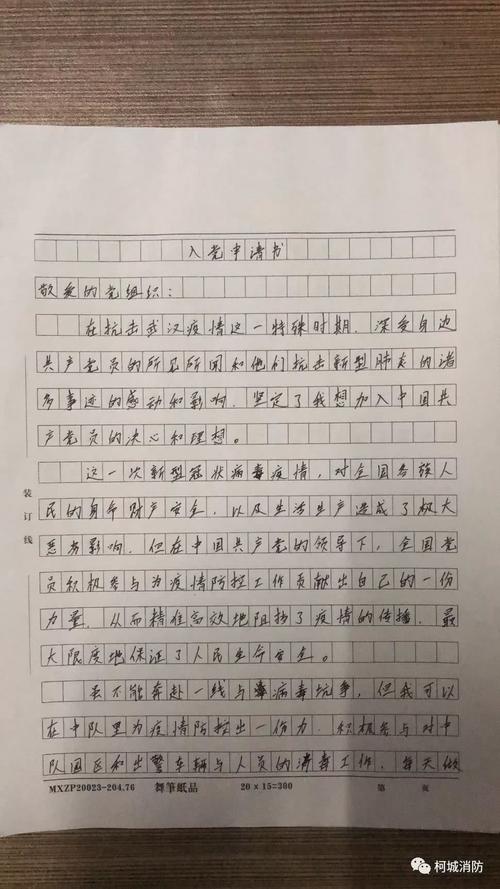 入党申请书
敬爱的党组织：
在抗击武汉疫情这一特殊时期，深受身边
共产党员的所见所闻和他们抗击新型肺炎的诸
多事迹的感动和影响，坚定了我想加入中国共
产党员的决心和理想。
这一次新型冠状病毒疫情，对全国各族人
民的身命财产安全，以及生活生产造成了极大
恶劣影响，但在中国共产党的领导下，全国党
员积极参与为疫情防控工作贡献出自己的一份
力量，从而精准高效地阻挡了疫情的传播，最
大限度地保证了人民生命安全。
虽不能奔赴一线与病毒抗争，但我可以
在中队里为疫情防控出一份力，积极参与对中
队园区和出警车辆与人员的消毒工作，每天做
装订线
MXZP20023-204.76 舞笔纸品 20×15=300 第 页
柯城消防